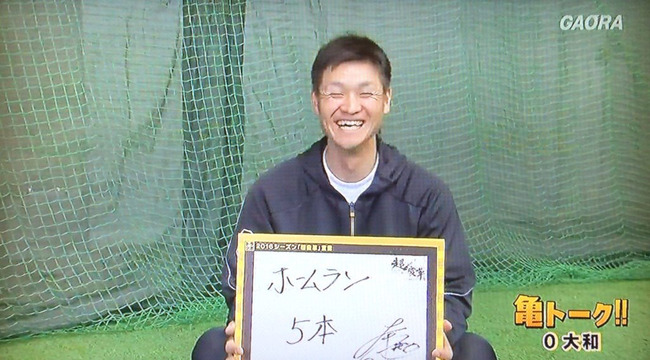 GAORA
2016シーズン「超変革」宣言
超変革
ホームラン
5本
亀トーク!!
0 大和